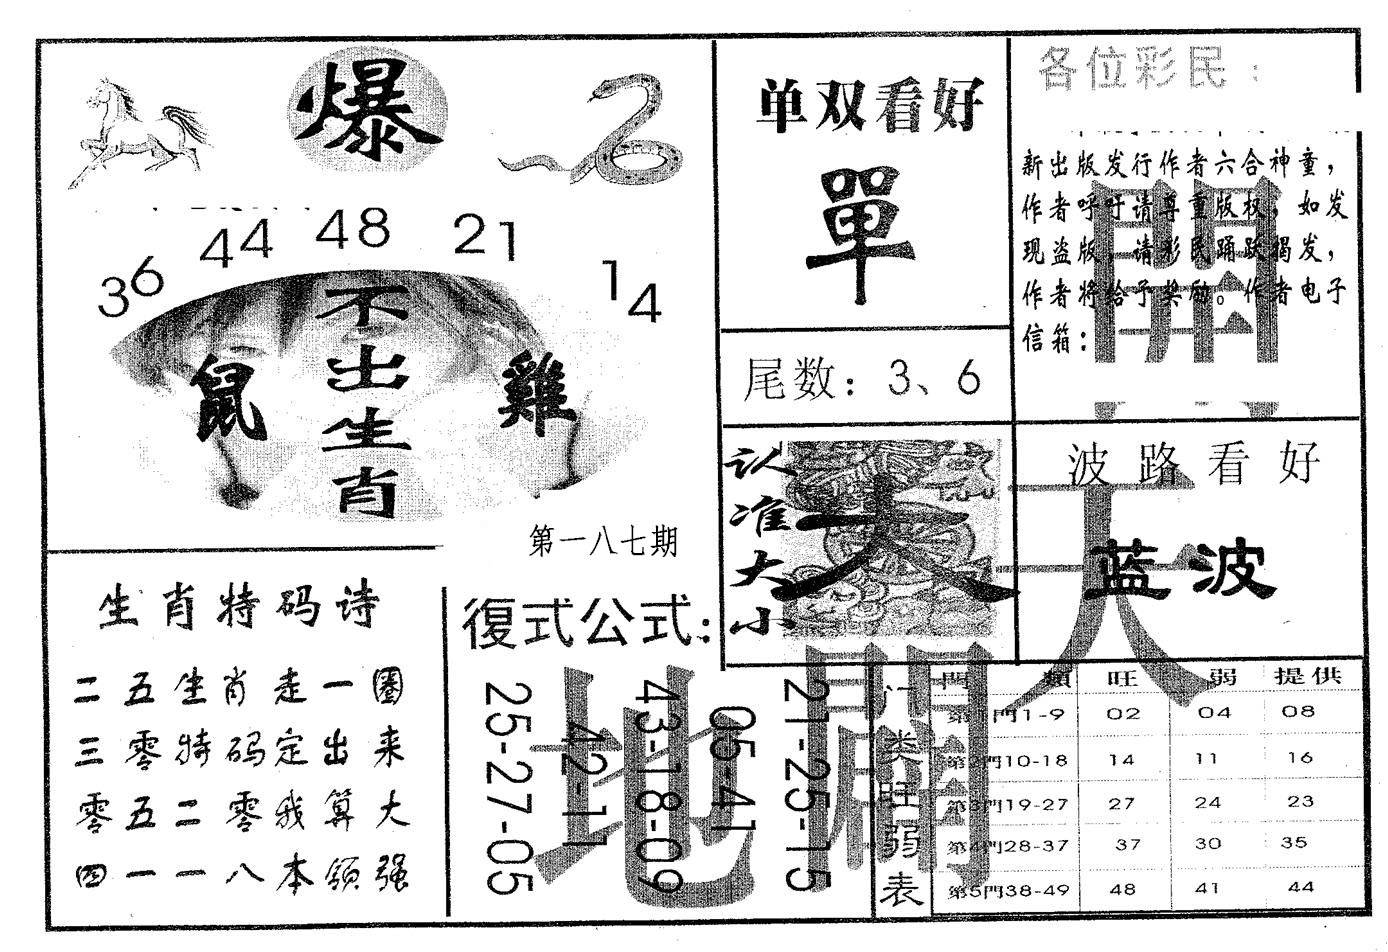 爆
36 44 48 21 14
不出生肖
鼠 雞
第一八七期
单双看好
單
尾数：3、6
各位彩民：
新出版发行作者六合神童，
作者呼吁请尊重版权，如发
现盗版，请彩民踊跃揭发，
作者将给予奖励。作者电子
信箱：
认准大小
大
波路看好
蓝波
生肖特码诗
二五生肖走一圈
三零特码定出来
零五二零我算大
四一一八本领强
復式公式：
25-27-05
42-11
43-18-09
05-41
21-25-15
天
地
開
門
門类旺弱表
門類 旺 弱 提供
第1門1-9 02 04 08
第2門10-18 14 11 16
第3門19-27 27 24 23
第4門28-37 37 30 35
第5門38-49 48 41 44